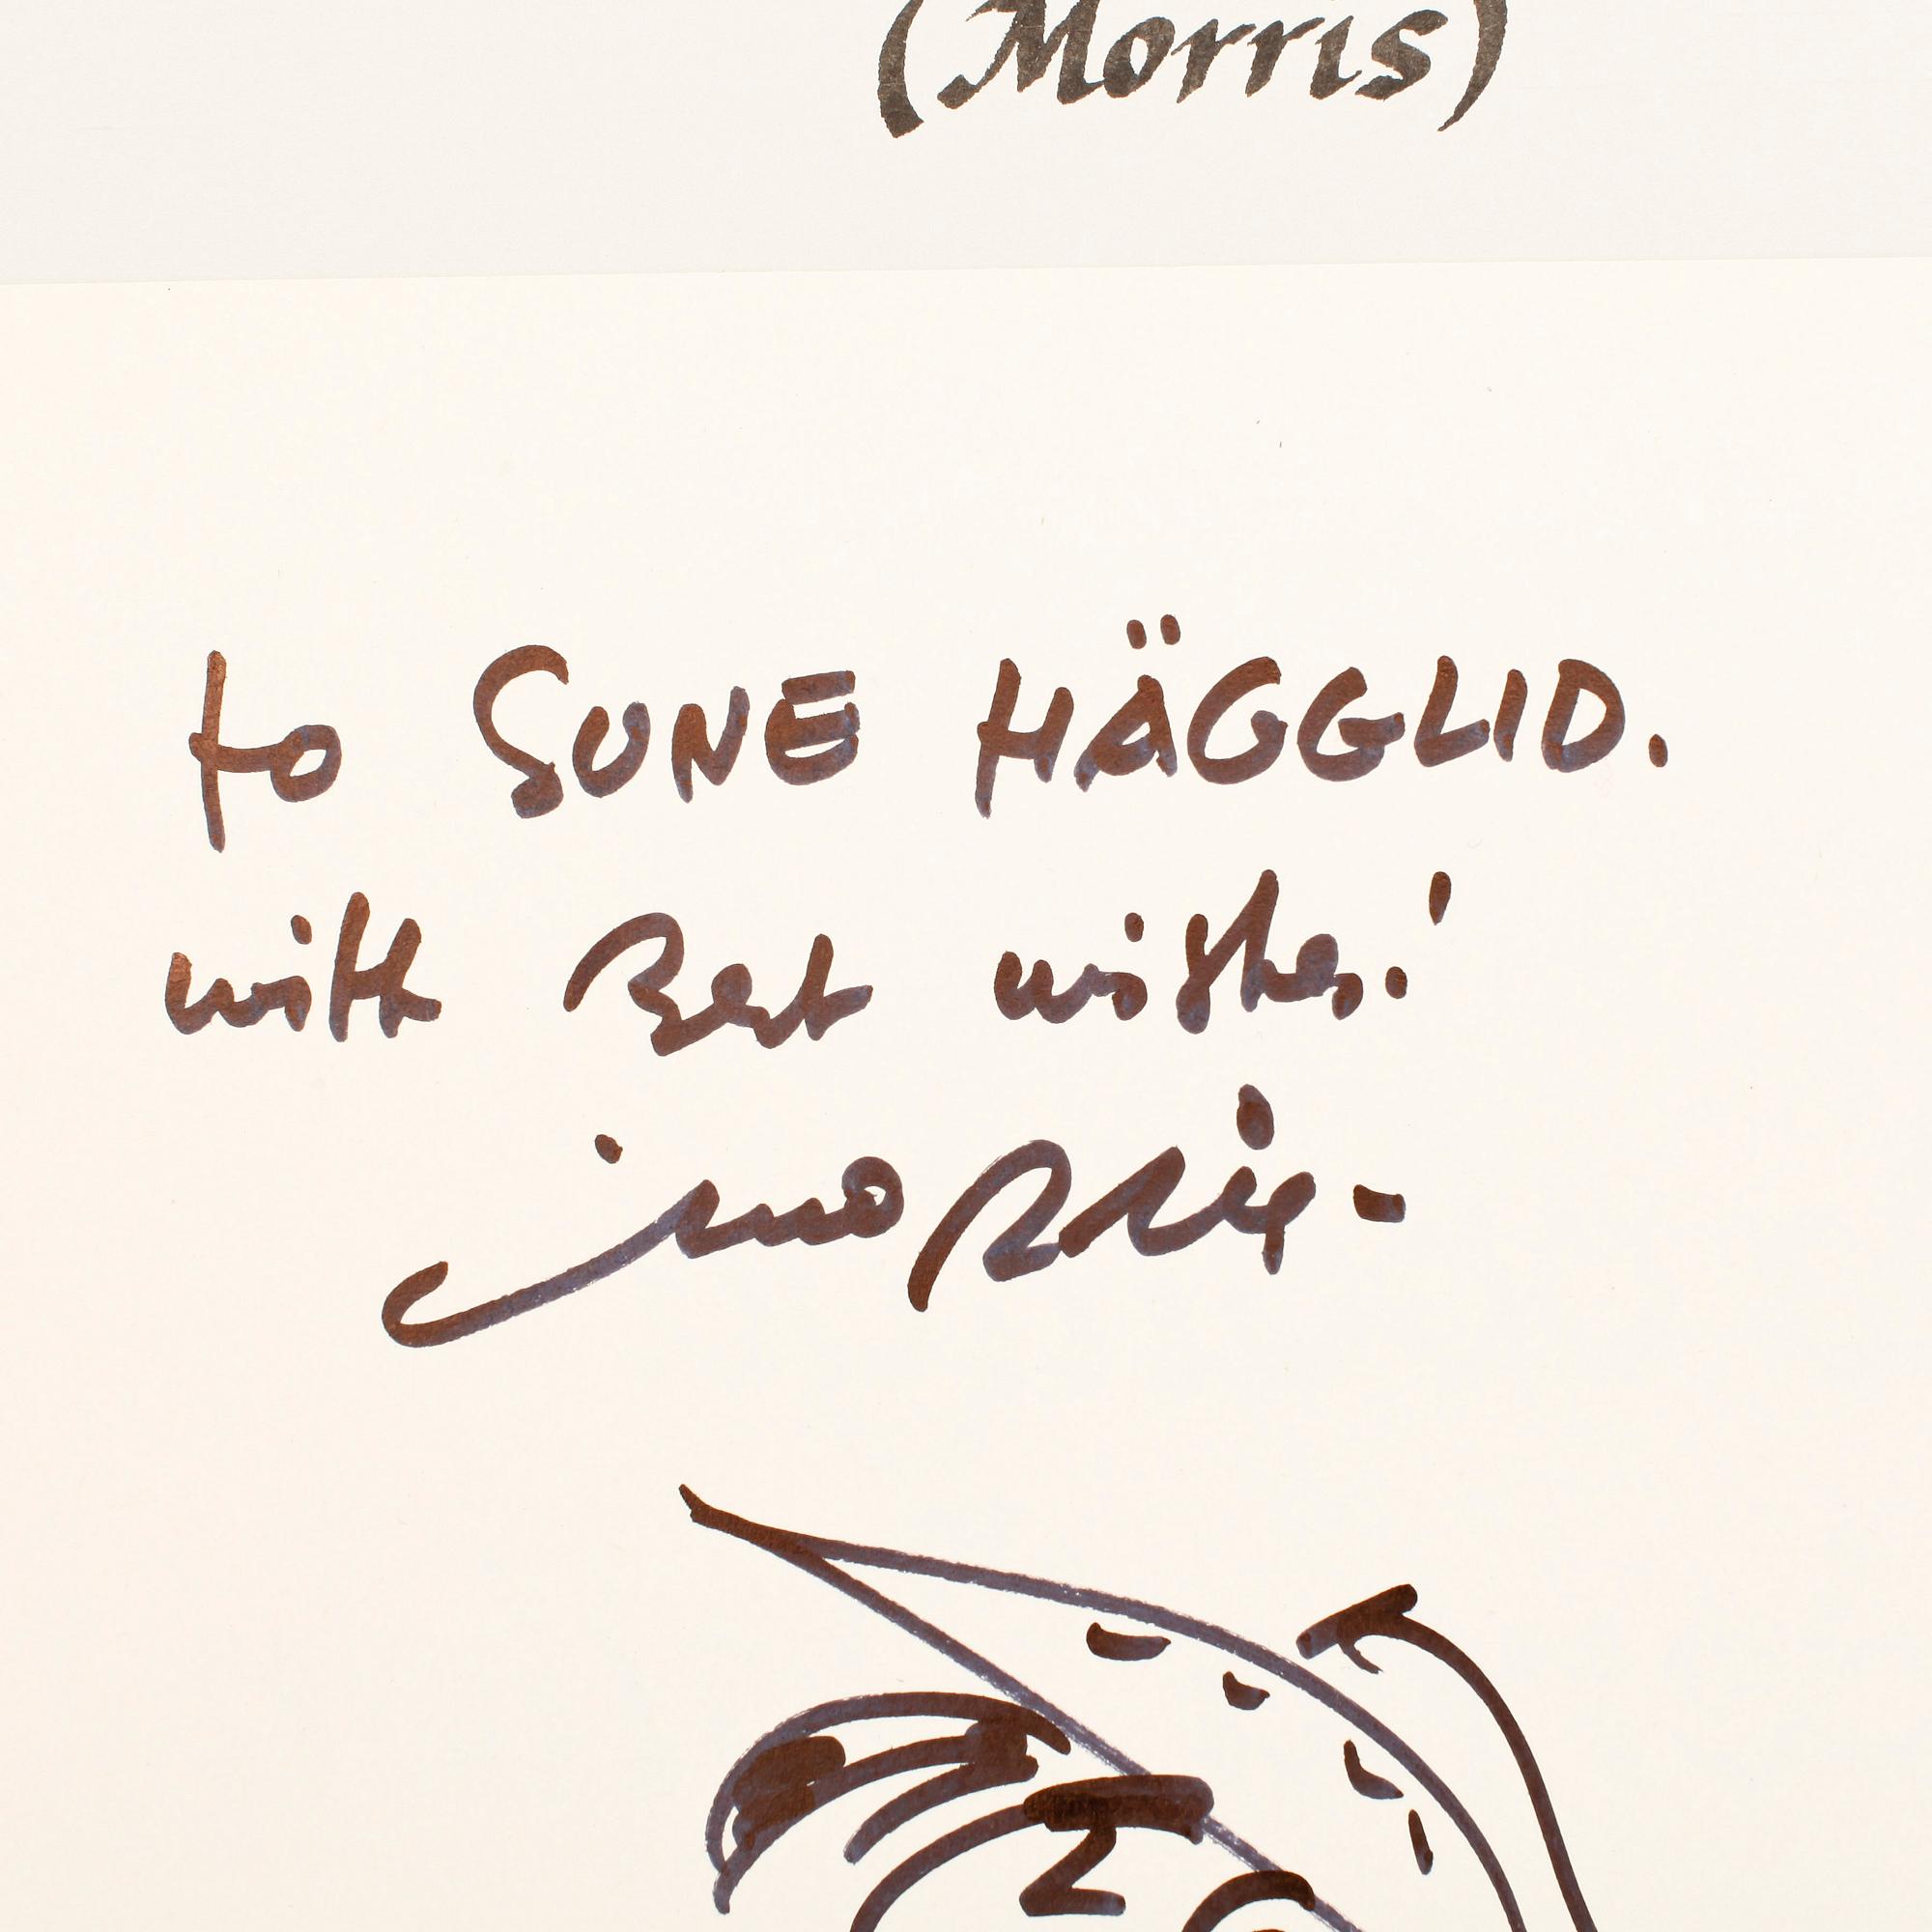 (Morris)
to SUNE HÄGGLID.
with Best wishes!
morris-